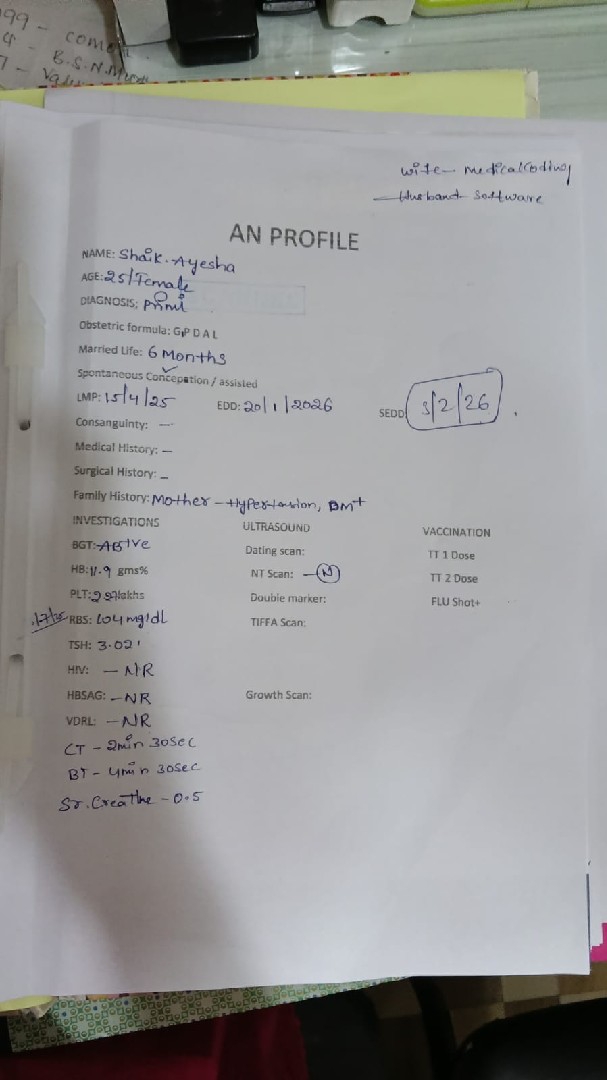 99 - come
B.S.N.
wife - medical Coding
- Husband Software
AN PROFILE
NAME: Shaik. Ayesha
AGE: 25/Female
DIAGNOSIS: Primi
Obstetric formula: G P D A L
Married Life: 6 Months
Spontaneous Concepation / assisted
LMP: 15/4/25 EDD: 20/1/2026 SEDD 3/2/26
Consanguinty: -
Medical History: -
Surgical History: -
Family History: Mother - Hypertension, DM+
INVESTIGATIONS ULTRASOUND VACCINATION
BGT: AB+ve Dating scan: TT 1 Dose
HB: 11.9 gms% NT Scan: - N TT 2 Dose
PLT: lakhs Double marker: FLU Shot+
RBS: 104 mg/dl TIFFA Scan:
TSH: 3.02
HIV: - NR
HBSAG: - NR Growth Scan:
VDRL: - NR
CT - 2min 30sec
BT - 4min 30sec
Sr. Creatine - 0.5